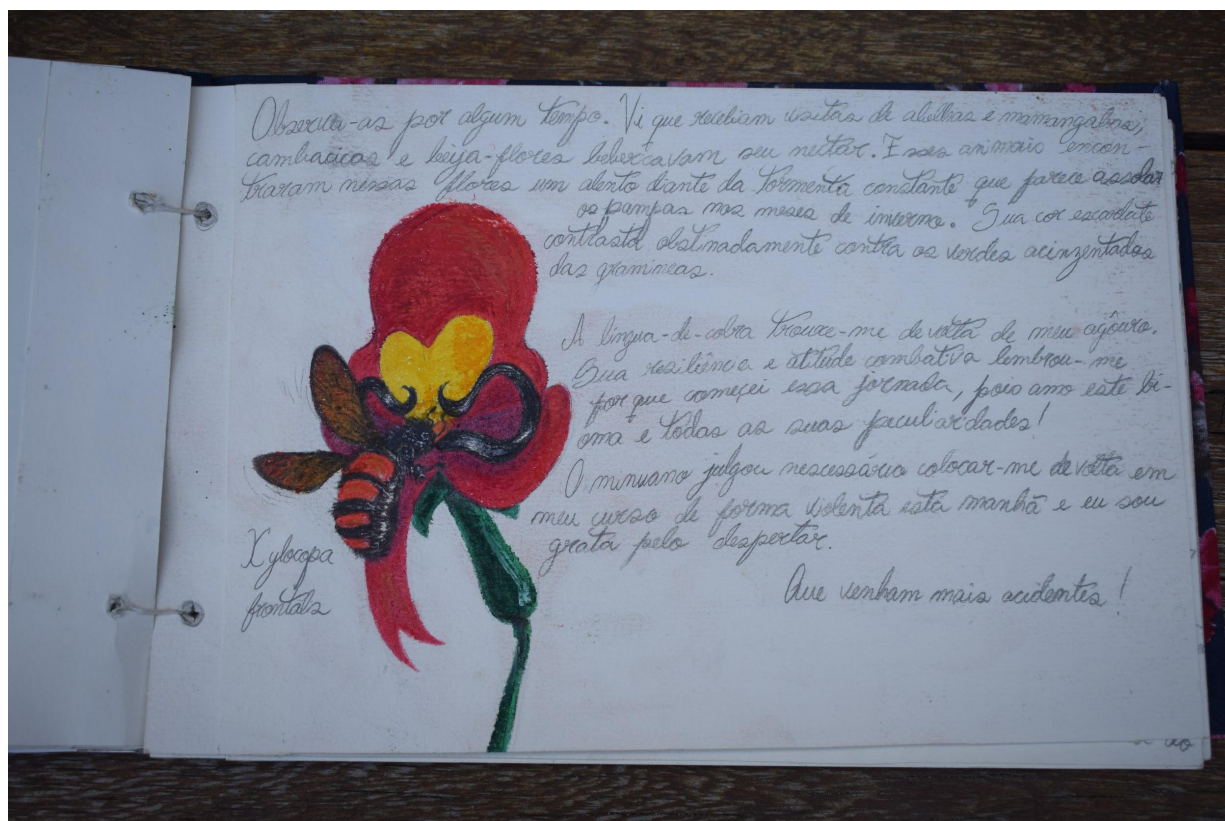 Observei-as por algum tempo. Vi que recebiam visitas de abelhas e mamangabas;
cambacicas e beija-flores bebericavam seu néctar. Esses animais encon-
traram nessas flores um alento diante da tormenta constante que parece assolar
os pampas nos meses de inverno. Sua cor escarlate
contrasta obstinadamente contra os verdes acinzentados
das gramíneas.
A língua-de-cobra trouxe-me de volta de meu agouro.
Sua resiliência e atitude combativa lembrou-me
por que começei essa jornada, pois amo este bi-
oma e todas as suas peculiaridades!
O minuano julgou nescessário colocar-me de volta em
meu curso de forma violenta esta manhã e eu sou
grata pelo despertar.
Xylocopa
frontalis
Que venham mais acidentes!